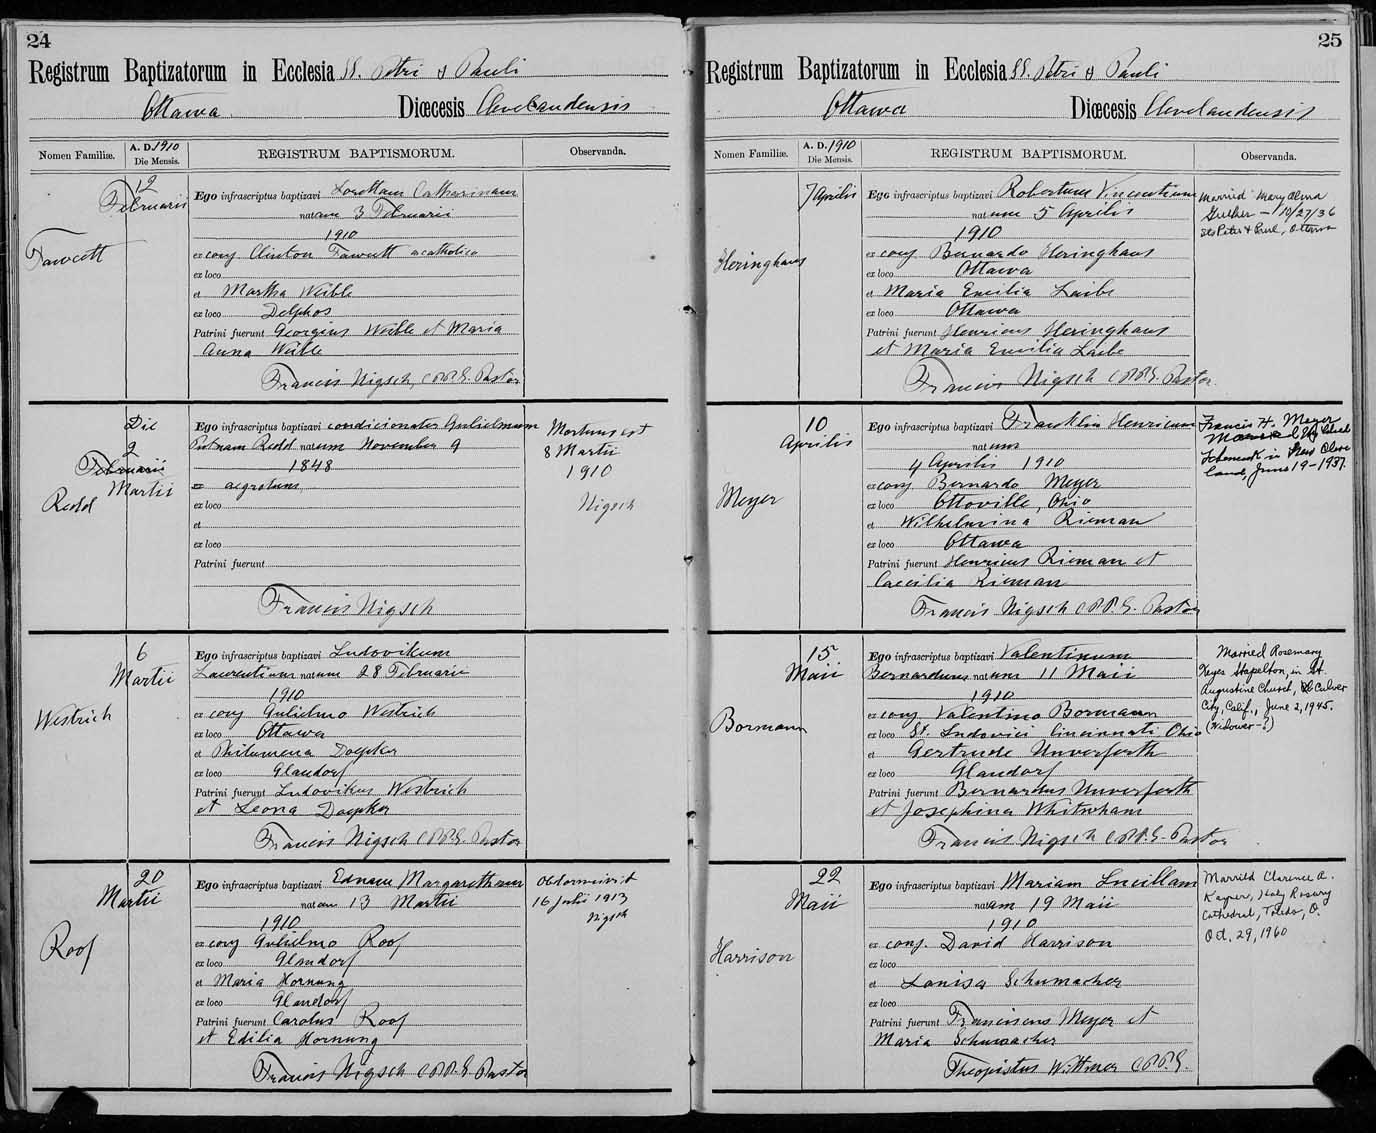 24
Registrum Baptizatorum in Ecclesia SS. Petri & Pauli
Ottawa Diœcesis Clevelandensis
Nomen Familiæ. A. D. 1910 Die Mensis. REGISTRUM BAPTISMORUM. Observanda.
12 Februarii
Fawcett
Ego infrascriptus baptizavi Lorettam Catharinam
natam 3 Februarii
1910
ex conj Clinton Fawcett acatholico
ex loco
et Martha Weible
ex loco Delphos
Patrini fuerunt Georgius Weible et Maria
Anna Weible
Francis Nigsch, C.PP.S. Pastor
Die
9
Februarii
Martii
Redd
Ego infrascriptus baptizavi condicionates Gulielmum
Putnam Redd natum November 9
1848
ex aegrotum
ex loco
et
ex loco
Patrini fuerunt
Francis Nigsch
Mortuus est
8 Martii
1910
Nigsch
6
Martii
Westrich
Ego infrascriptus baptizavi Ludovikum
Laurentium natum 28 Februarii
1910
ex conj Gulielmo Westrich
ex loco Ottawa
et Philumena Doepker
ex loco Glandorf
Patrini fuerunt Ludovikus Westrich
et Leona Doepker
Francis Nigsch C.PP.S. Pastor
20
Martii
Roof
Ego infrascriptus baptizavi Ednam Margaretham
natam 13 Martii
1910
ex conj Gulielmo Roof
ex loco Glandorf
et Maria Hornung
ex loco Glandorf
Patrini fuerunt Carolus Roof
et Edilia Hornung
Francis Nigsch C.PP.S. Pastor
Obdormivit
16 Julii 1913
Nigsch
25
Registrum Baptizatorum in Ecclesia SS. Petri & Pauli
Ottawa Diœcesis Clevelandensis
Nomen Familiæ. A. D. 1910 Die Mensis. REGISTRUM BAPTISMORUM. Observanda.
7 Aprilis
Heringhaus
Ego infrascriptus baptizavi Robertum Vincentium
natum 5 Aprilis
1910
ex conj Bernardo Heringhaus
ex loco Ottawa
et Maria Emilia Laibe
ex loco Ottawa
Patrini fuerunt Henricus Heringhaus
et Maria Emilia Laibe
Francis Nigsch C.PP.S. Pastor.
Married Mary Alma
– 10/27/36
Sts Peter & Paul, Ottawa
10
Aprilis
Meyer
Ego infrascriptus baptizavi Franklin Henricum
natum
4 Aprilis 1910
ex conj Bernardo Meyer
ex loco Ottoville, Ohio
et Wilhelmina Rieman
ex loco Ottawa
Patrini fuerunt Henricus Rieman et
Caecilia Rieman
Francis Nigsch C.PP.S. Pastor
Francis H. Meyer
Married
in New Cleve
land, June 19–1937.
15
Maii
Bormann
Ego infrascriptus baptizavi Valentinum
Bernardum natum 11 Maii
1910
ex conj Valentino Bormann
ex loco St. Ludovici Cincinnati Ohio
et Gertrude Unverferth
ex loco Glandorf
Patrini fuerunt Bernardus Unverferth
et Josephina Whitreham
Francis Nigsch C.PP.S. Pastor
Married Rosemary
Keyes Stapelton, in St.
Augustine Church, Culver
City, Calif., June 2, 1945.
(Widower–?)
22
Maii
Harrison
Ego infrascriptus baptizavi Mariam Lucillam
natam 19 Maii
1910
ex conj. David Harrison
ex loco
et Louisa Schumacher
ex loco
Patrini fuerunt Franciscus Meyer et
Maria Schumacher
Theopistus Wittmer C.PP.S.
Married Clarence A.
Kayser, Holy Rosary
Cathedral, Toledo, O.
Oct. 29, 1960